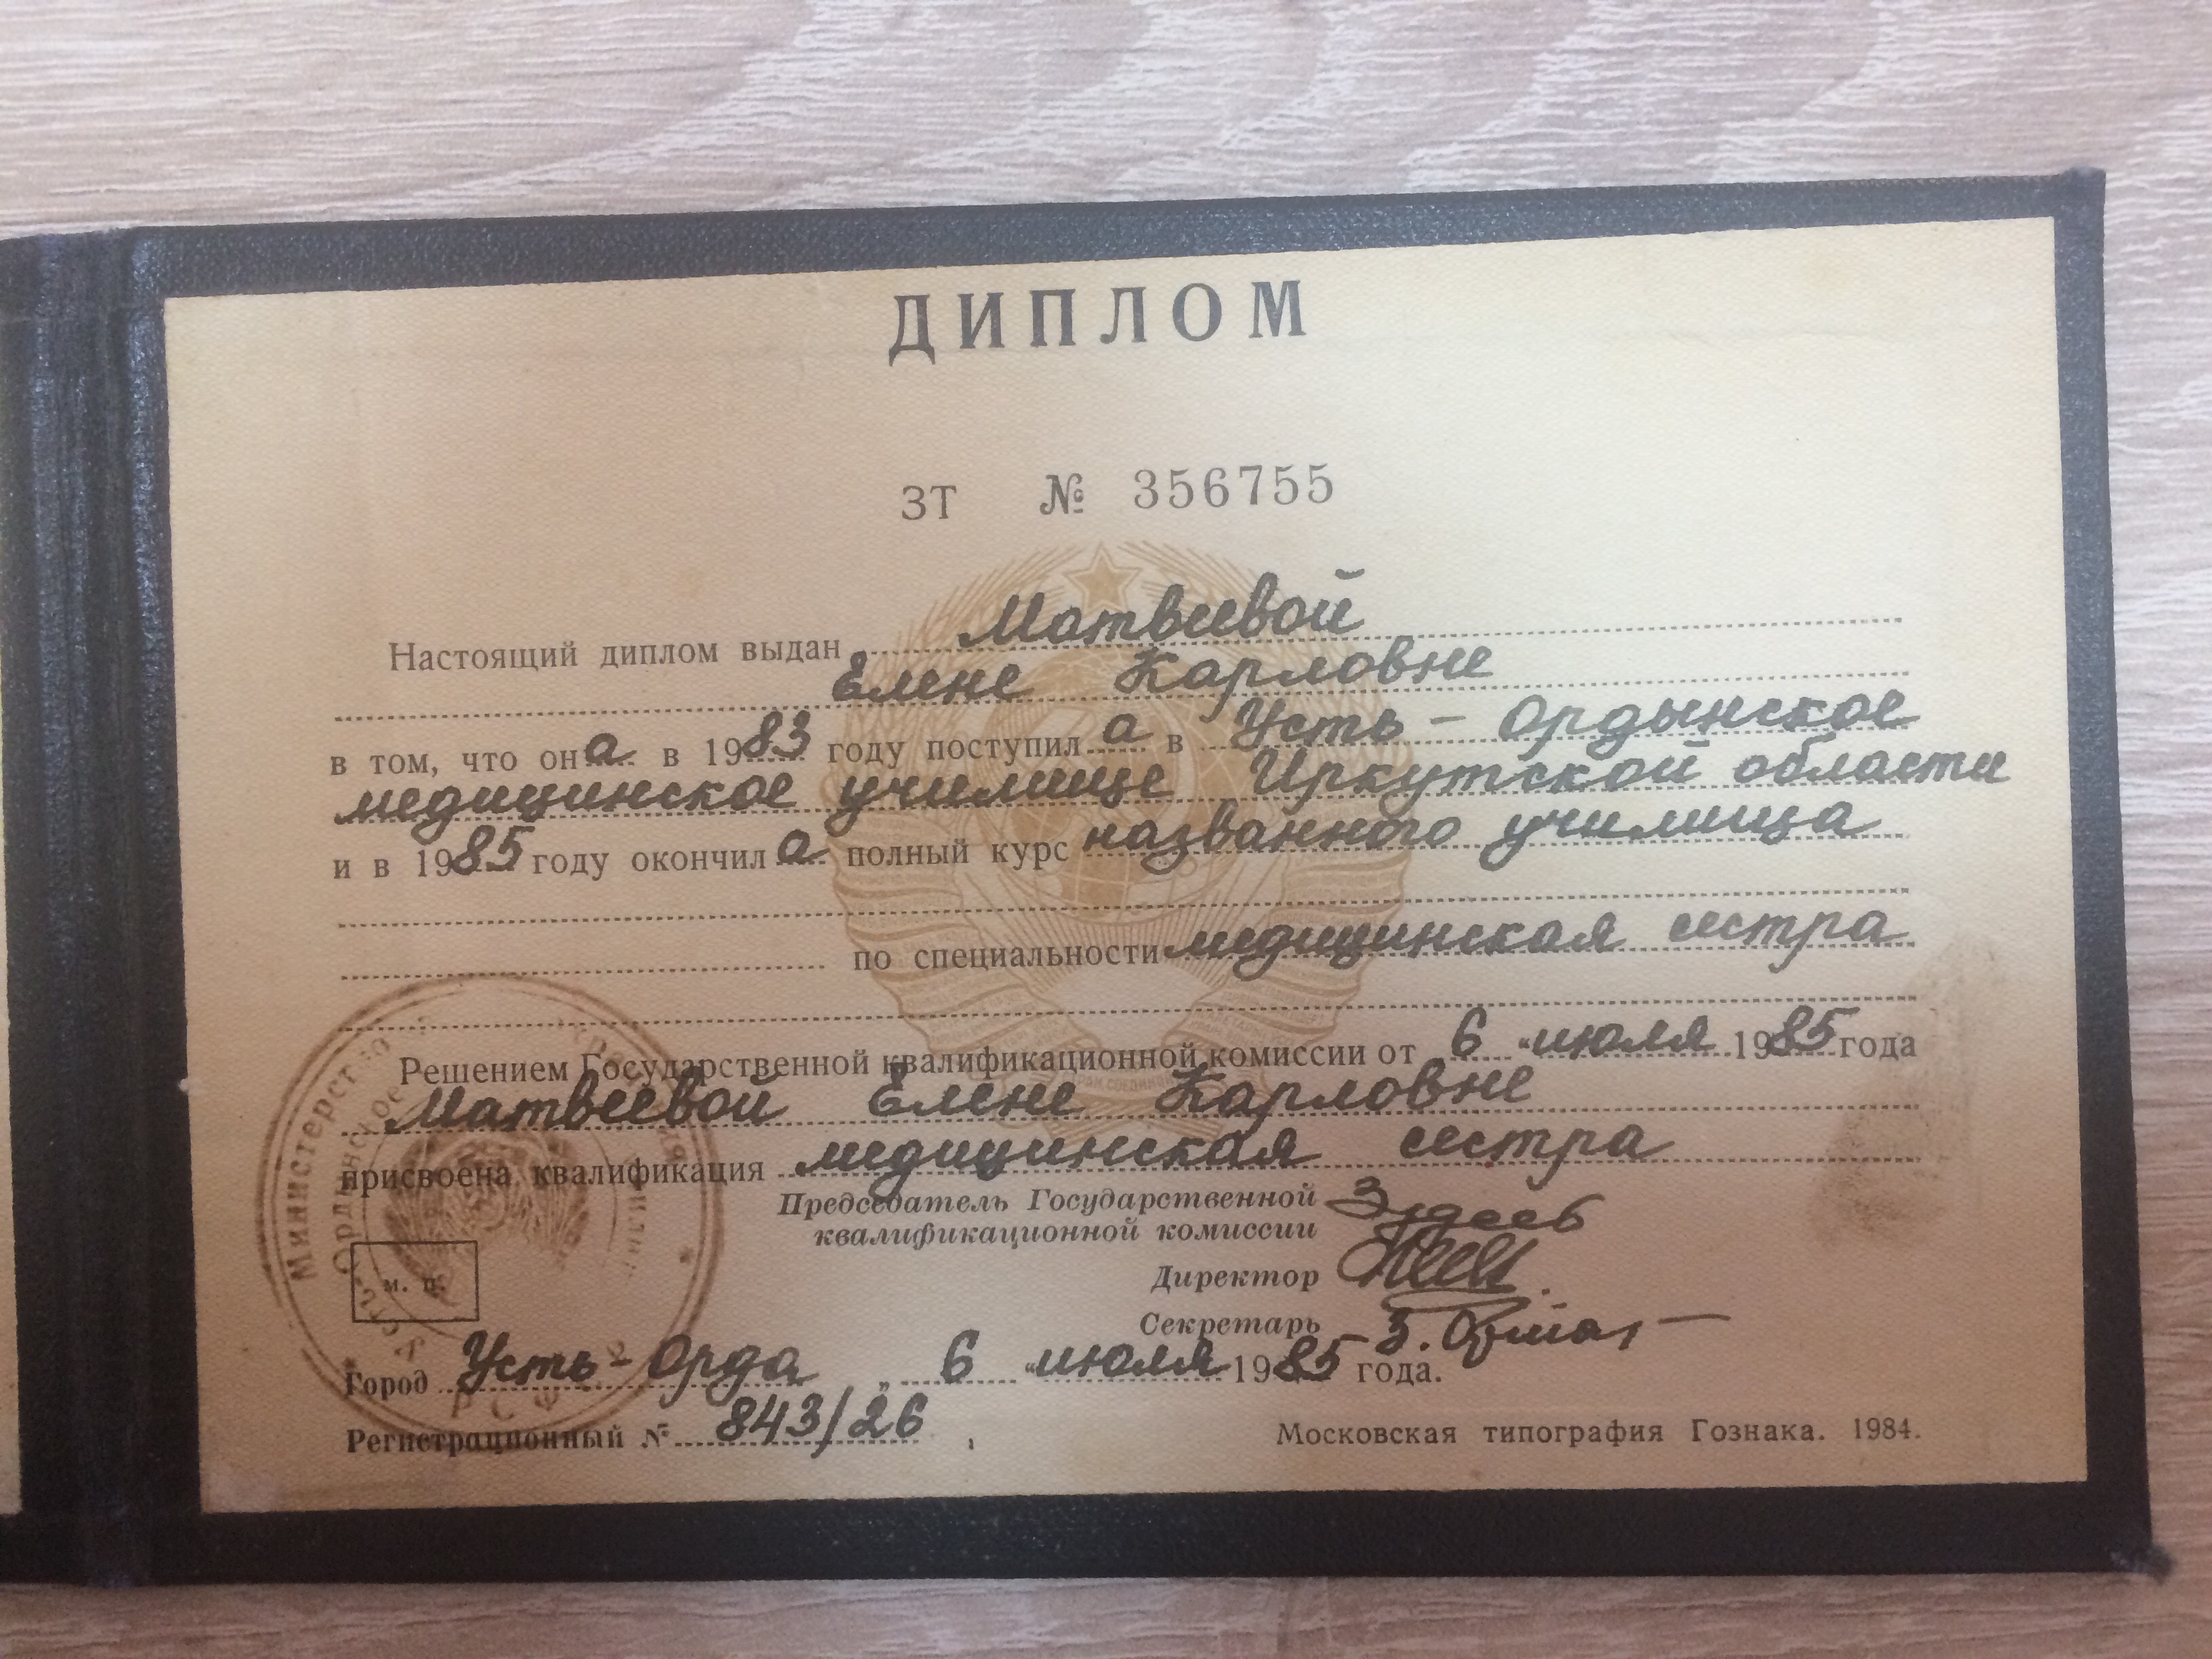 ДИПЛОМ
ЗТ № 356755
Настоящий диплом выдан Матвеевой
Елене Карловне
в том, что она в 1983 году поступила в Усть-Ордынское
медицинское училище Иркутской области
и в 1985 году окончила полный курс названного училища
по специальности медицинская сестра
Решением Государственной квалификационной комиссии от 6 "июля 1985 года
Матвеевой Елене Карловне
присвоена квалификация медицинская сестра
Председатель Государственной
квалификационной комиссии
Директор
Секретарь
м. п.
Город Усть-Орда „ 6 "июля 1985 года.
Регистрационный № 843/26
Московская типография Гознака. 1984.
Министерство
РСФ